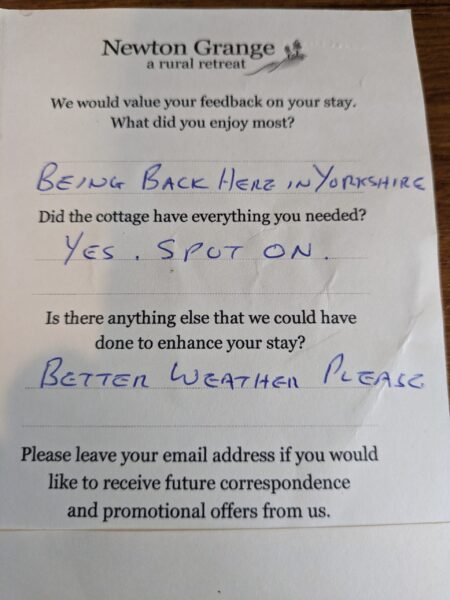 Newton Grange
a rural retreat
We would value your feedback on your stay.
What did you enjoy most?
BEING BACK HERE IN YORKSHIRE
Did the cottage have everything you needed?
YES. SPOT ON.
Is there anything else that we could have
done to enhance your stay?
BETTER WEATHER PLEASE
Please leave your email address if you would
like to receive future correspondence
and promotional offers from us.